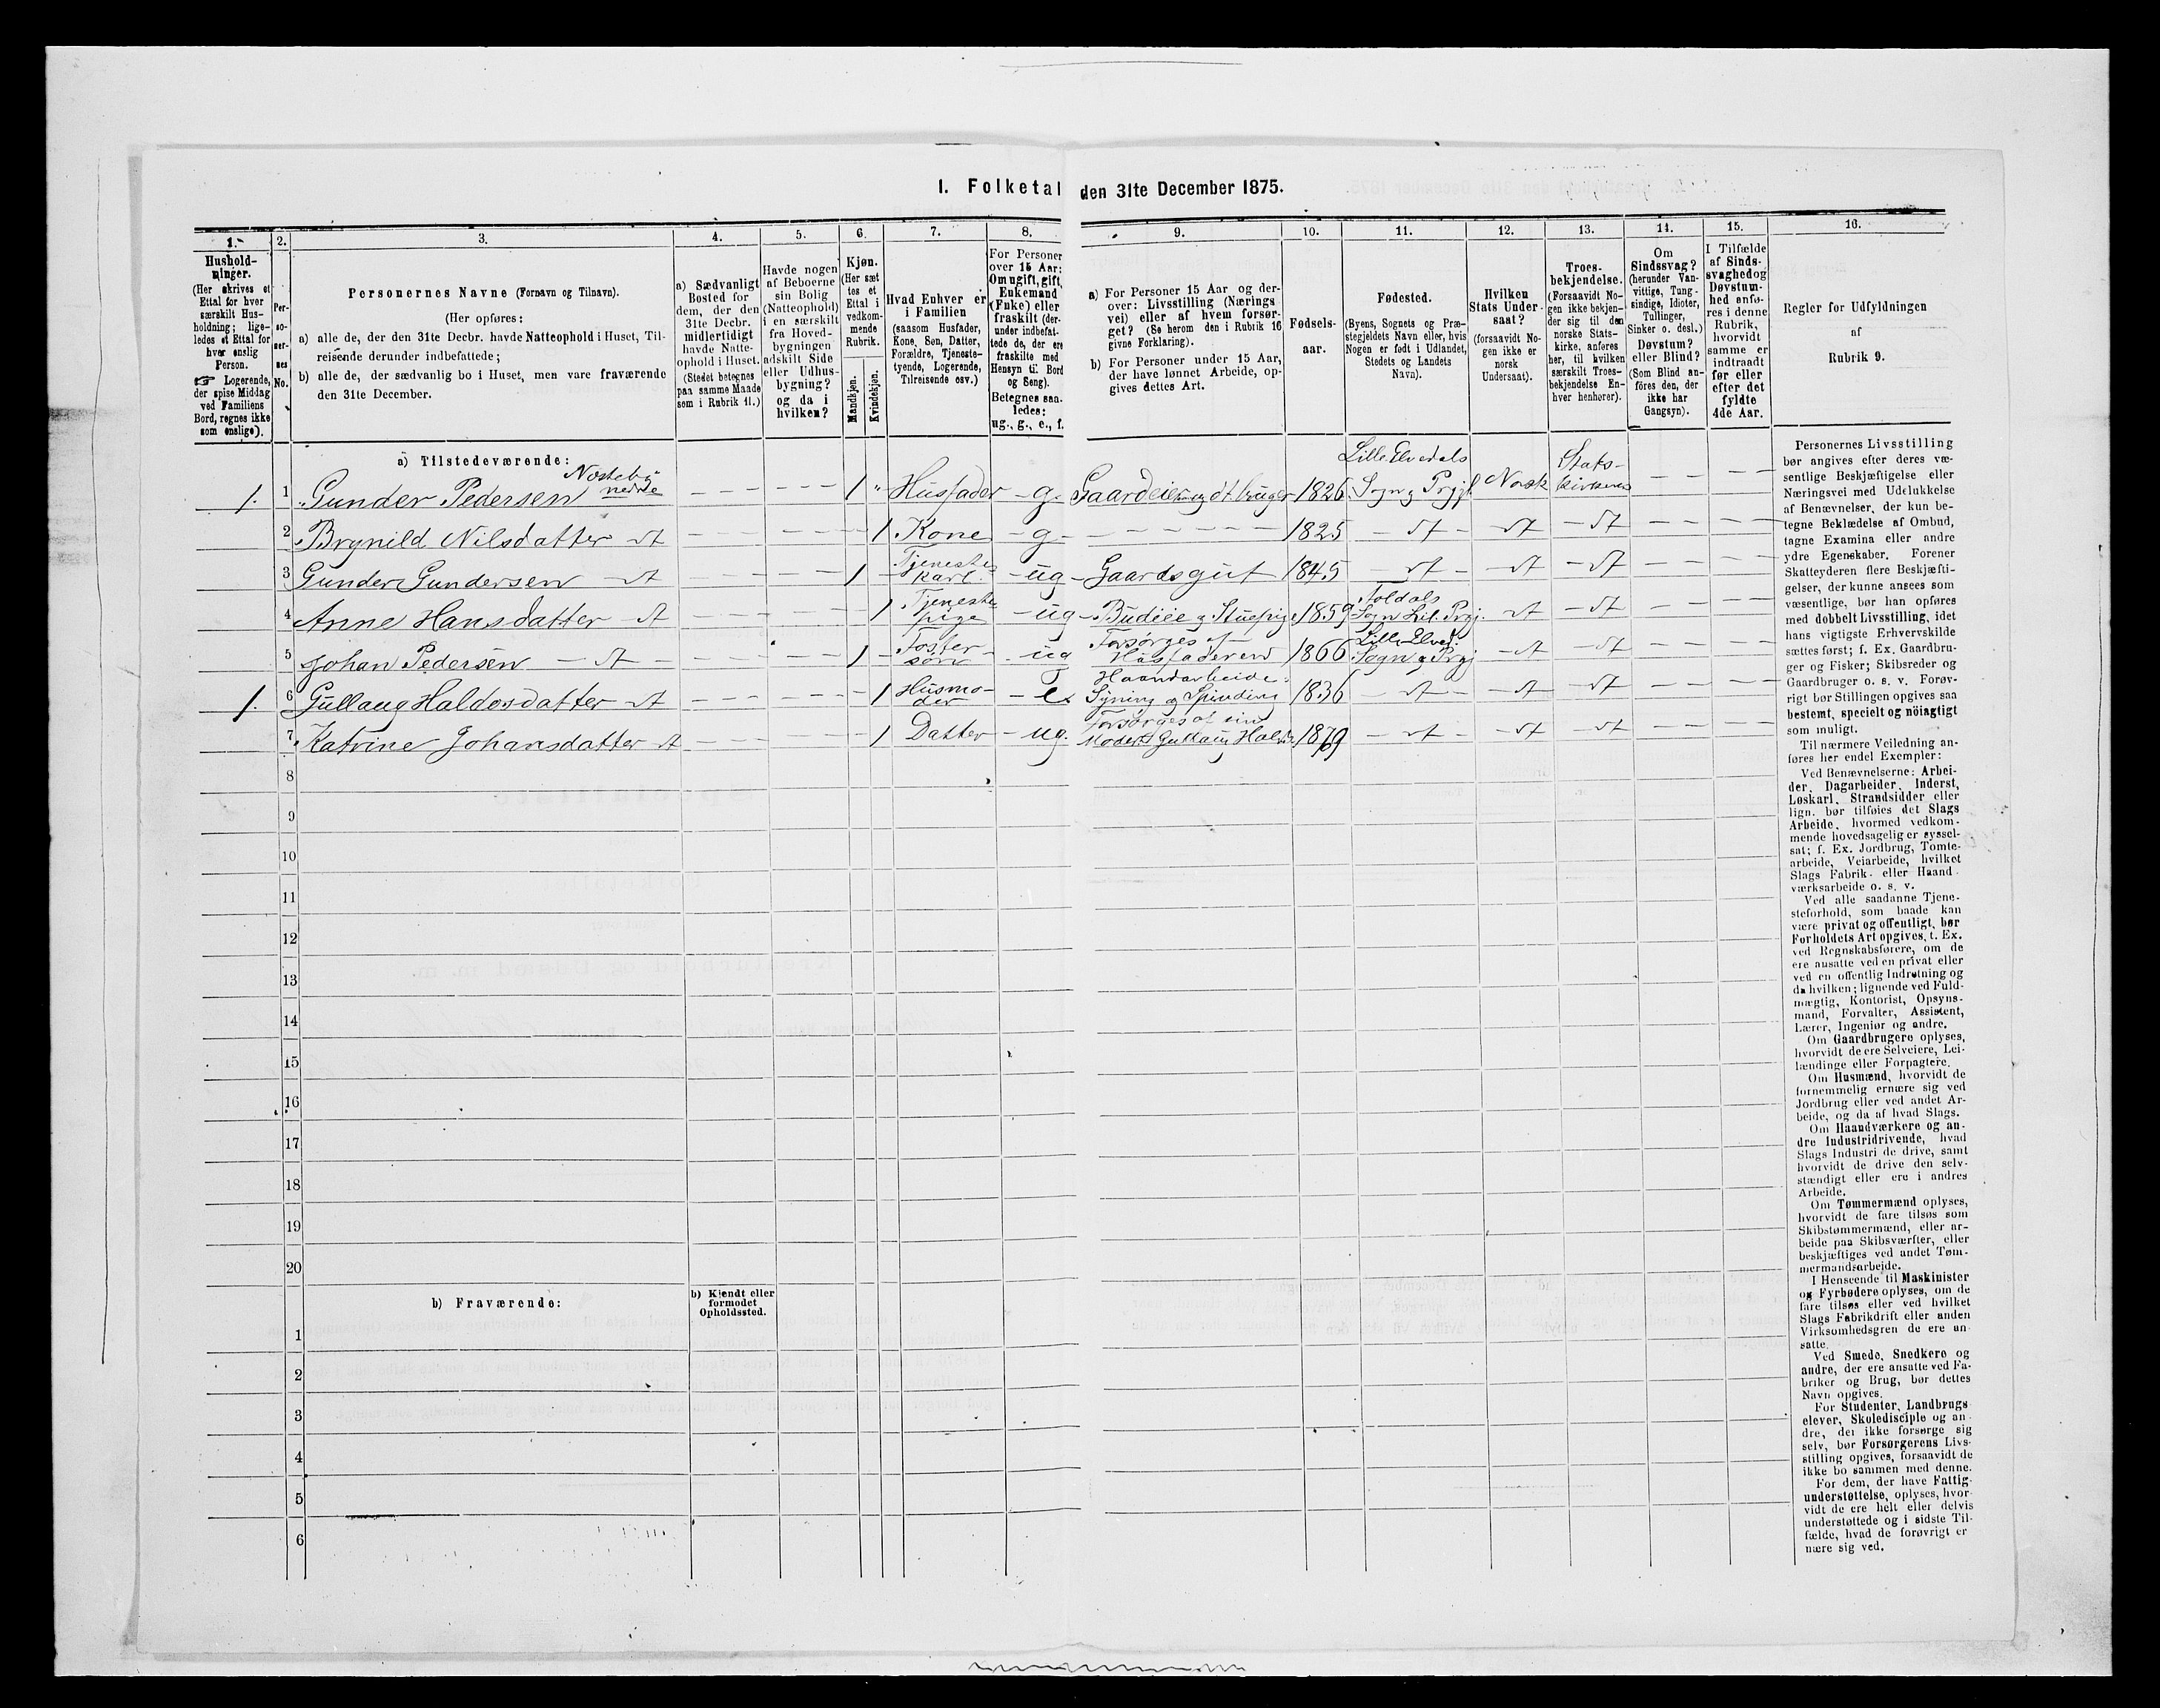 I. Folketal den 31te December 1875.
1.
Hushold-
ninger.
(Her skrives et
Ettal for hver
særskilt Hus-
holdning; lige-
ledes et Ettal for
hver enslig
Person.
☞ Logerende,
der spise Middag
ved Familiens
Bord, regnes ikke
som enslige).
2.
Per-
so-
ner-
nes
No.
3.
Personernes Navne (Fornavn og Tilnavn).
(Her opføres:
a) alle de, der den 31te Decbr. havde Natteophold i Huset, Til-
reisende derunder indbefattede;
b) alle de, der sædvanlig bo i Huset, men vare fraværende
den 31te December.
4.
a) Sædvanligt
Bosted for
dem, der den
31te Decbr.
midlertidigt
havde Natte-
ophold i Huset.
(Stedet betegnes
paa samme Maade
som i Rubrik 11.)
5.
Havde nogen
af Beboerne
sin Bolig
(Natteophold)
i en særskilt
fra Hoved-
bygningen
adskilt Side
eller Udhus-
bygning?
og da i
hvilken?
6.
Kjøn.
(Her sæt
tes et
Ettal i
vedkom-
mende
Rubrik.
Mandkjøn.
Kvindekjøn.
7.
Hvad Enhver er
i Familien
(saasom Husfader,
Kone, Søn, Datter,
Forældre, Tjeneste-
tyende, Logerende,
Tilreisende osv.)
8.
For Personer
over 15 Aar:
Om ugift, gift,
Enkemand
(Enke) eller
fraskilt (der-
under indbefat-
tede de, der ere
fraskilte med
Hensyn til Bord
og Seng).
Betegnes saa-
ledes:
ug., g., e., f.
9.
a) For Personer 15 Aar og der-
over: Livsstilling (Nærings
vei) eller af hvem forsør-
get? (Se herom den i Rubrik 16
givne Forklaring).
b) For Personer under 15 Aar,
der have lønnet Arbeide, op-
gives dettes Art.
10.
Fødsels-
aar.
11.
Fødested.
(Byens, Sognets og Præ-
stegjeldets Navn eller, hvis
Nogen er født i Udlandet,
Stedets og Landets
Navn).
12.
Hvilken
Stats Under-
saat?
(forsaavidt No-
gen ikke er
norsk
Undersaat).
13.
Troes-
bekjendelse.
(Forsaavidt No-
gen ikke bekjen-
der sig til den
norske Stats-
kirke, anføres
her, til hvilken
særskilt Troes-
bekjendelse En-
hver henhører).
14.
Om
Sindssvag?
(herunder Van-
vittige, Tung-
sindige, Idioter,
Tullinger,
Sinker o. desl.)
Døvstum?
eller Blind?
(Som Blind an-
føres den, der
ikke har
Gangsyn).
15.
I Tilfælde
af Sinds-
svaghed og
Døvstum-
hed anfø-
res i denne
Rubrik,
hvorvidt
samme er
indtraadt
før eller
efter det
fyldte
4de Aar.
16.
Regler for Udfyldningen
af
Rubrik 9.
a) Tilstedeværende:
1. 1 Gunder Pedersen Nosteby nedre 1 " Husfader g. Gaardeier og bruger 1826 Lille Elvedals Sogn og Prgj. Norsk Stats-kirken
2 Brynild Nilsdatter dt 1 Kone g 1825 dt dt dt
3 Gunder Gundersen dt 1 Tjeneste Karl ug Gaardsgut 1845 dt dt dt
4 Anne Hansdatter dt 1 Tjeneste pige ug Budeie og Stuepige 1859 Foldals Sogn Lil. Prgj. dt dt
5 Johan Pedersen dt 1 Foster-søn ug Forsørges af Husfaderen 1866 Lille Elved. Sogn og Prgj dt dt
1. 6 Gullaug Haldosdatter dt 1 Husmo-der e. Haandarbeide: Syning og Spinding 1836 dt dt dt
7 Katrine Johansdatter dt 1 Datter ug. Forsørges af sin Moder Gullaug Hald. dt dt dt
8
9
10
11
12
13
14
15
16
17
18
19
20
b) Fraværende:
b) Kjendt eller
formodet
Opholdssted.
1
2
3
4
5
6
Personernes Livsstilling
bør angives efter deres væ-
sentlige Beskjæftigelse eller
Næringsvei med Udelukkelse
af Benævnelser, der kun be-
tegne Beklædelse af Ombud,
tagne Examina eller andre
ydre Egenskaber. Forener
Skatteyderen flere Beskjæfti-
gelser, der kunne ansees som
væsentlige, bør han opføres
med dobbelt Livsstilling, idet
hans vigtigste Erhvervskilde
sættes først; f. Ex. Gaardbru-
ger og Fisker; Skibsreder og
Gaardbruger o. s. v. Forøv-
rigt bør Stillingen opgives saa
bestemt, specielt og nöiagtigt
som muligt.
Til nærmere Veiledning an-
føres her endel Exempler:
Ved Benævnelserne: Arbei-
der, Dagarbeider, Inderst,
Løskarl, Strandsidder eller
lign. bør tilføies det Slags
Arbeide, hvormed vedkom-
mende hovedsagelig er syssel-
sat; f. Ex. Jordbrug, Tomte-
arbeide, Veiarbeide, hvilket
Slags Fabrik- eller Haand-
værksarbeide o. s. v.
Ved alle saadanne Tjene-
steforhold, som baade kan
være privat og offentligt, bør
Forholdets Art opgives, t. Ex.
ved Regnskabsførere, om de
ere ansatte ved en privat eller
ved en offentlig Indretning og
da hvilken; lignende ved Fuld-
mægtig, Kontorist, Opsyns-
mand, Forvalter, Assistent,
Lærer, Ingeniør og andre.
Om Gaardbrugere oplyses,
hvorvidt de ere Selveiere, Lei-
lændinge eller Forpagtere.
Om Husmænd, hvorvidt de
fornemmelig ernære sig ved
Jordbrug eller ved andet Ar-
beide, og da af hvad Slags.
Om Haandværkere og an-
dre Industridrivende, hvad
Slags Industri de drive, samt
hvorvidt de drive den selv-
stændigt eller ere i andres
Arbeide.
Om Tømmermænd oplyses,
hvorvidt de fare tilsøs som
Skibstømmermænd, eller ar-
beide paa Skibsværfter, eller
beskjæftiges ved andet Tøm-
mermandsarbejde.
I Henseende til Maskinister
og Fyrbødere oplyses, om de
fare tilsøs eller ved hvilket
Slags Fabrikdrift eller anden
Virksomhedsgren de ere an-
satte.
Ved Smede, Snedkere og
andre, der ere ansatte ved Fa-
briker og Brug, bør dettes
Navn opgives.
For Studenter, Landbrugs
elever, Skoledisciple og an-
dre, der ikke forsørge sig
selv, bør Forsørgerens Livs-
stilling opgives, forsaavidt de
ikke bo sammen med denne.
For dem, der have Fattig-
understøttelse, oplyses, hvor-
vidt de ere helt eller delvis
understøttede og i sidste Til-
fælde, hvad de forøvrigt er
nære sig ved.